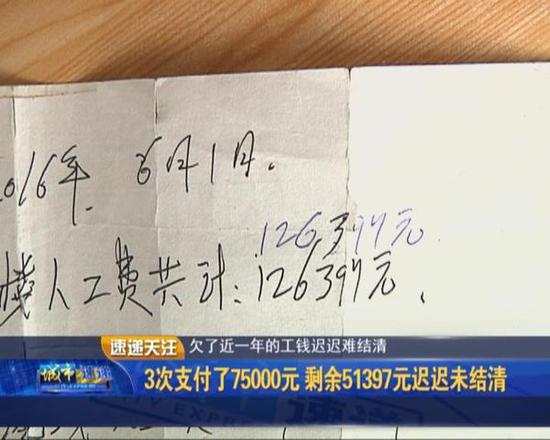 2016年 6月1日.
126397元
人工费共计:126397元.
速递关注
欠了近一年的工钱迟迟难结清
城市速递
3次支付了75000元 剩余51397元迟迟未结清